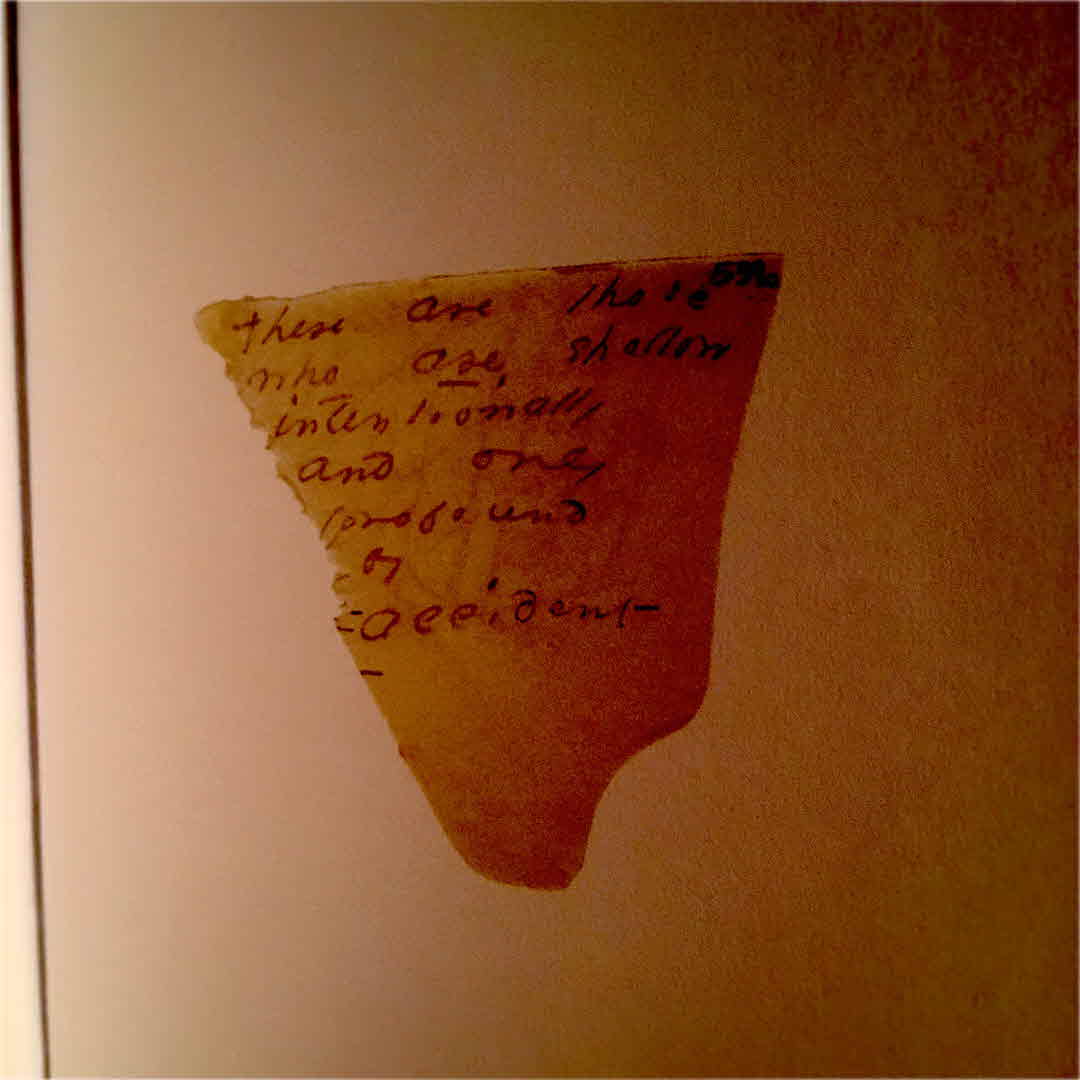 there are those 539
who are shallow
intentionally
and only
profound
by
accident